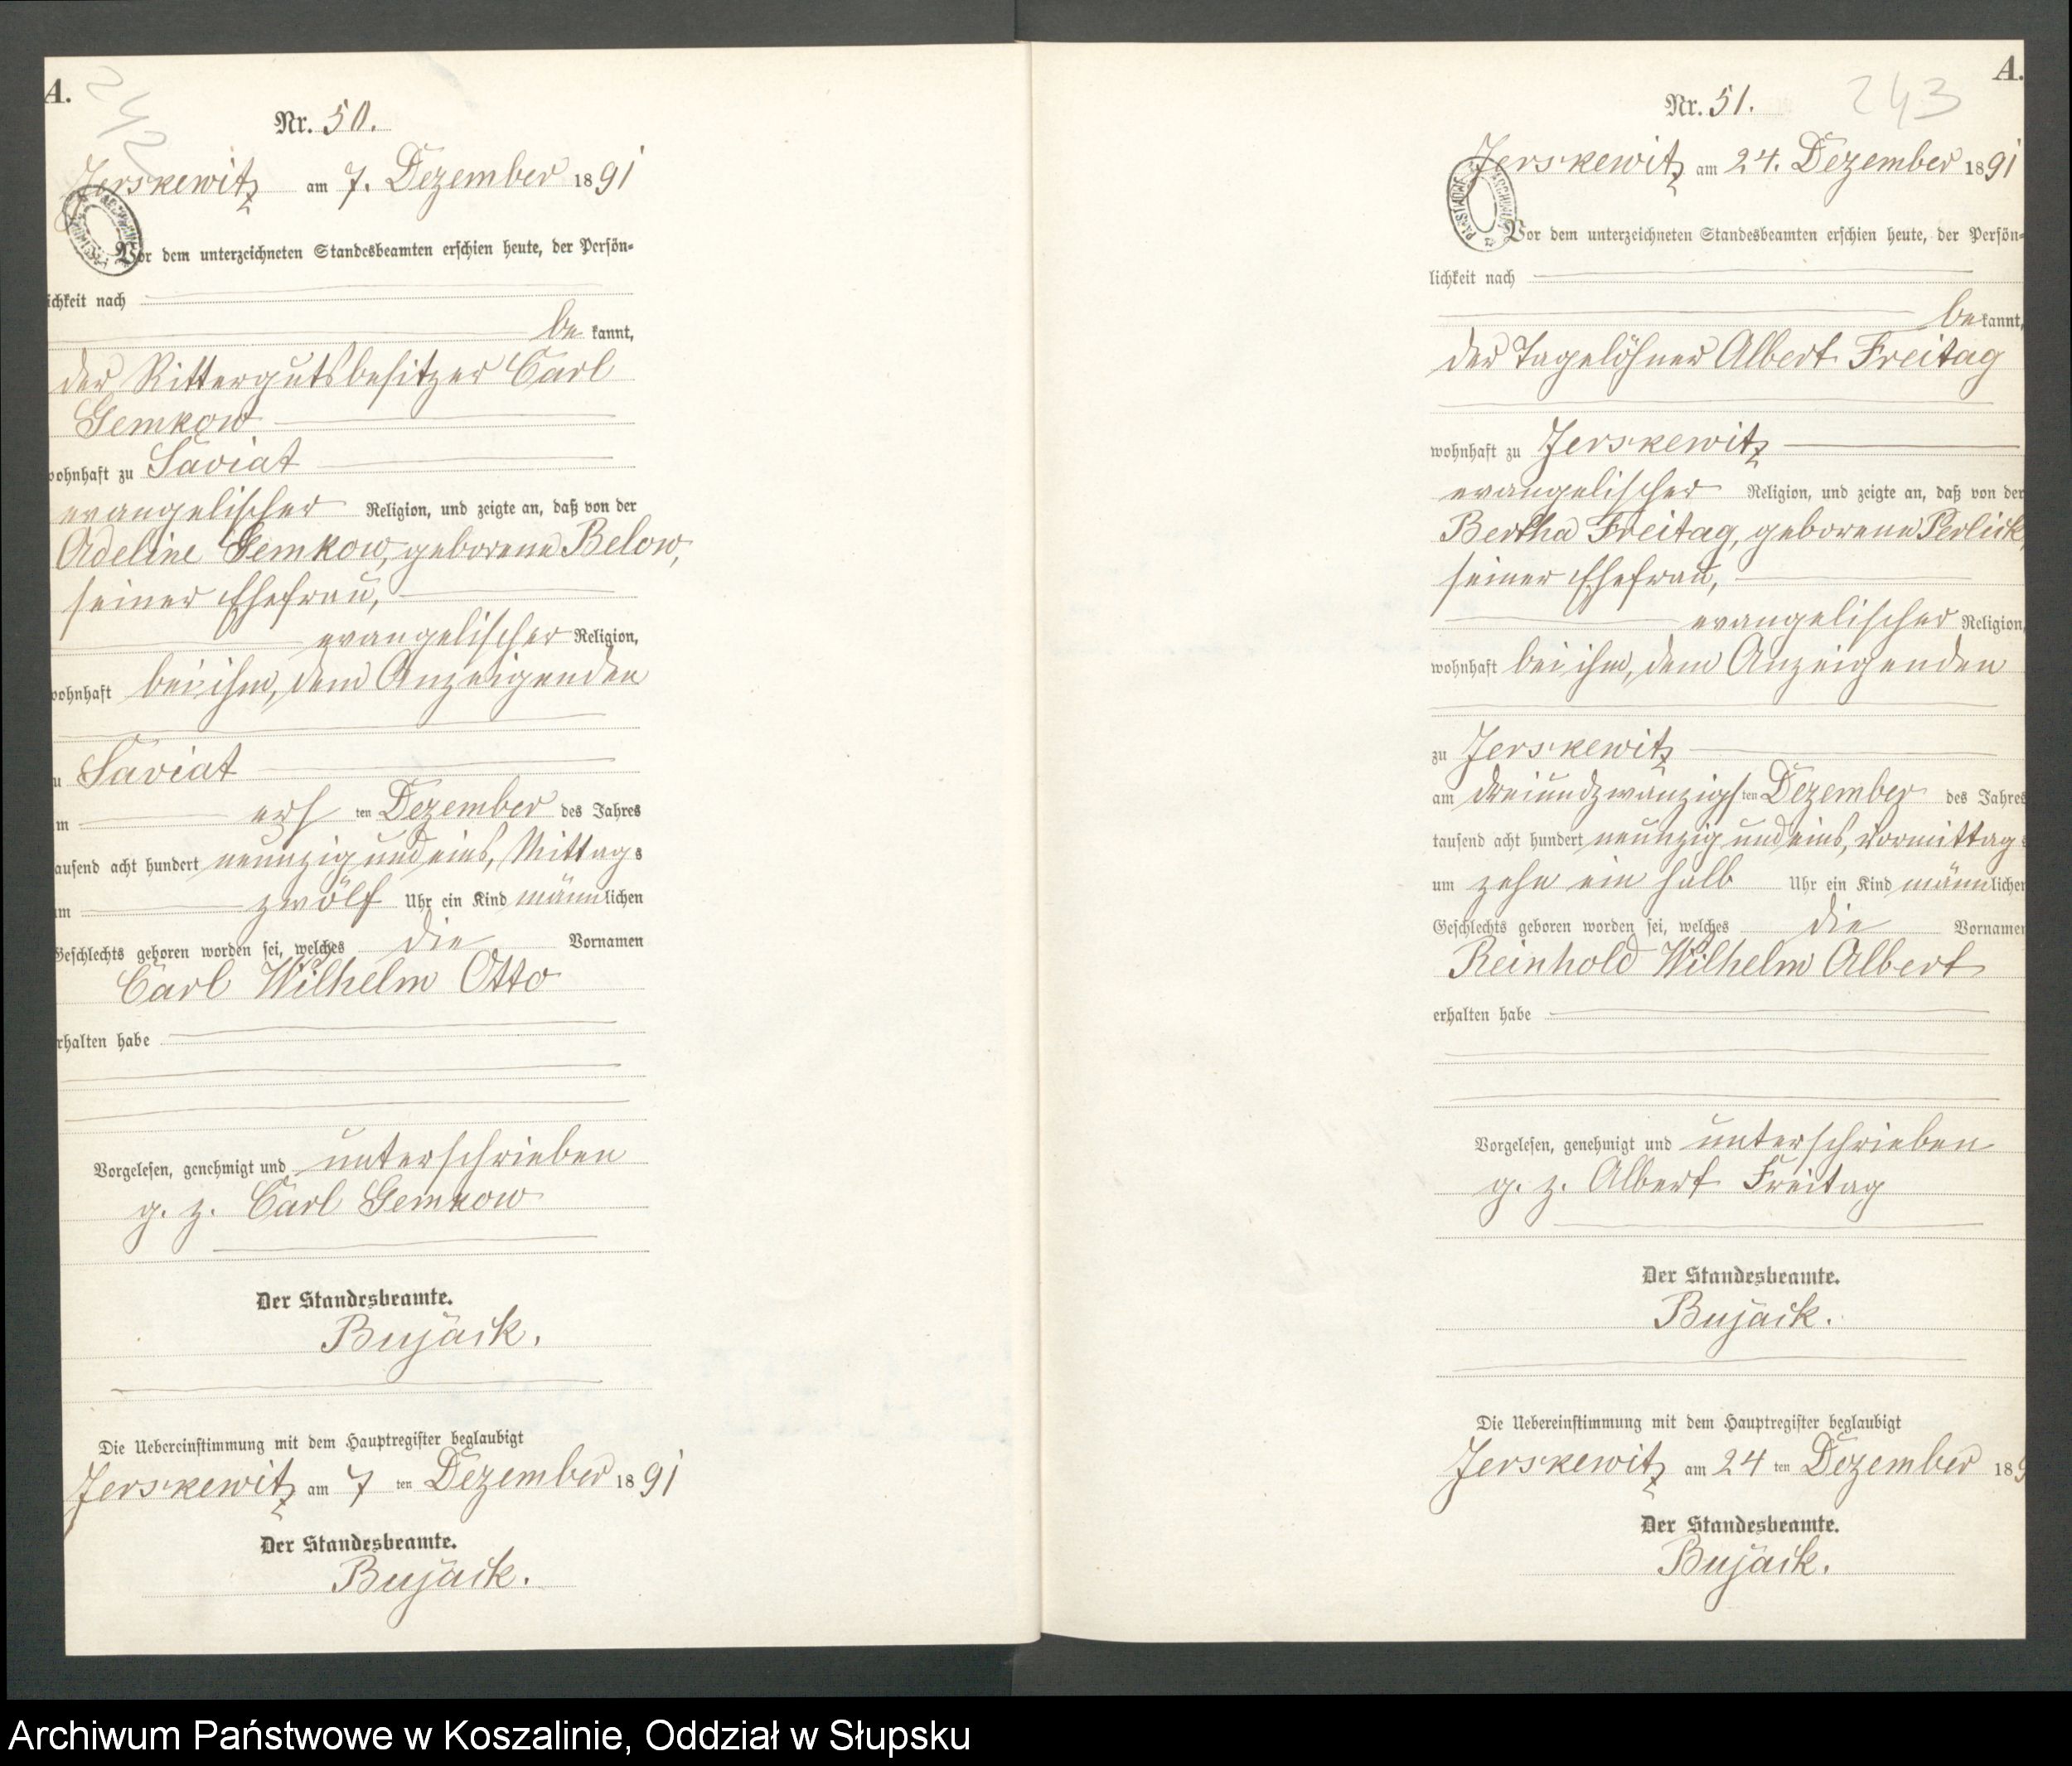 A.
242
Nr. 50.
Jerskewitz am 7. Dezember 1891
Vor dem unterzeichneten Standesbeamten erschien heute, der Persön-
ichkeit nach
be kannt,
der Rittergutsbesitzer Carl
Gemkow
wohnhaft zu Saviat
evangelischer Religion, und zeigte an, daß von der
Adeline Gemkow, geborene Below,
seiner Ehefrau,
evangelischer Religion,
wohnhaft bei ihm, dem Anzeigenden
u Saviat
m ersten Dezember des Jahres
ausend acht hundert neunzig und eins, Mittags
um zwölf Uhr ein Kind männlichen
Geschlechts geboren worden sei, welches die Vornamen
Carl Wilhelm Otto
rhalten habe
Vorgelesen, genehmigt und unterschrieben
g. z. Carl Gemkow
Der Standesbeamte.
Bujack.
Die Uebereinstimmung mit dem Hauptregister beglaubigt
Jerskewitz am 7 ten Dezember 1891
Der Standesbeamte.
Bujack.
A.
243
Nr. 51.
Jerskewitz am 24. Dezember 1891
Vor dem unterzeichneten Standesbeamten erschien heute, der Persön-
lichkeit nach
be kannt,
der Tagelöhner Albert Freitag
wohnhaft zu Jerskewitz
evangelischer Religion, und zeigte an, daß von der
Bertha Freitag, geborene Perlick,
seiner Ehefrau,
evangelischer Religion,
wohnhaft bei ihm, dem Anzeigenden
zu Jerskewitz
am dreiundzwanzigsten Dezember des Jahres
tausend acht hundert neunzig und eins, Vormittags
um zehn ein halb Uhr ein Kind männlichen
Geschlechts geboren worden sei, welches die Vornamen
Reinhold Wilhelm Albert
erhalten habe
Vorgelesen, genehmigt und unterschrieben
g. z. Albert Freitag
Der Standesbeamte.
Bujack.
Die Uebereinstimmung mit dem Hauptregister beglaubigt
Jerskewitz am 24 ten Dezember 189
Der Standesbeamte.
Bujack.
Archiwum Państwowe w Koszalinie, Oddział w Słupsku